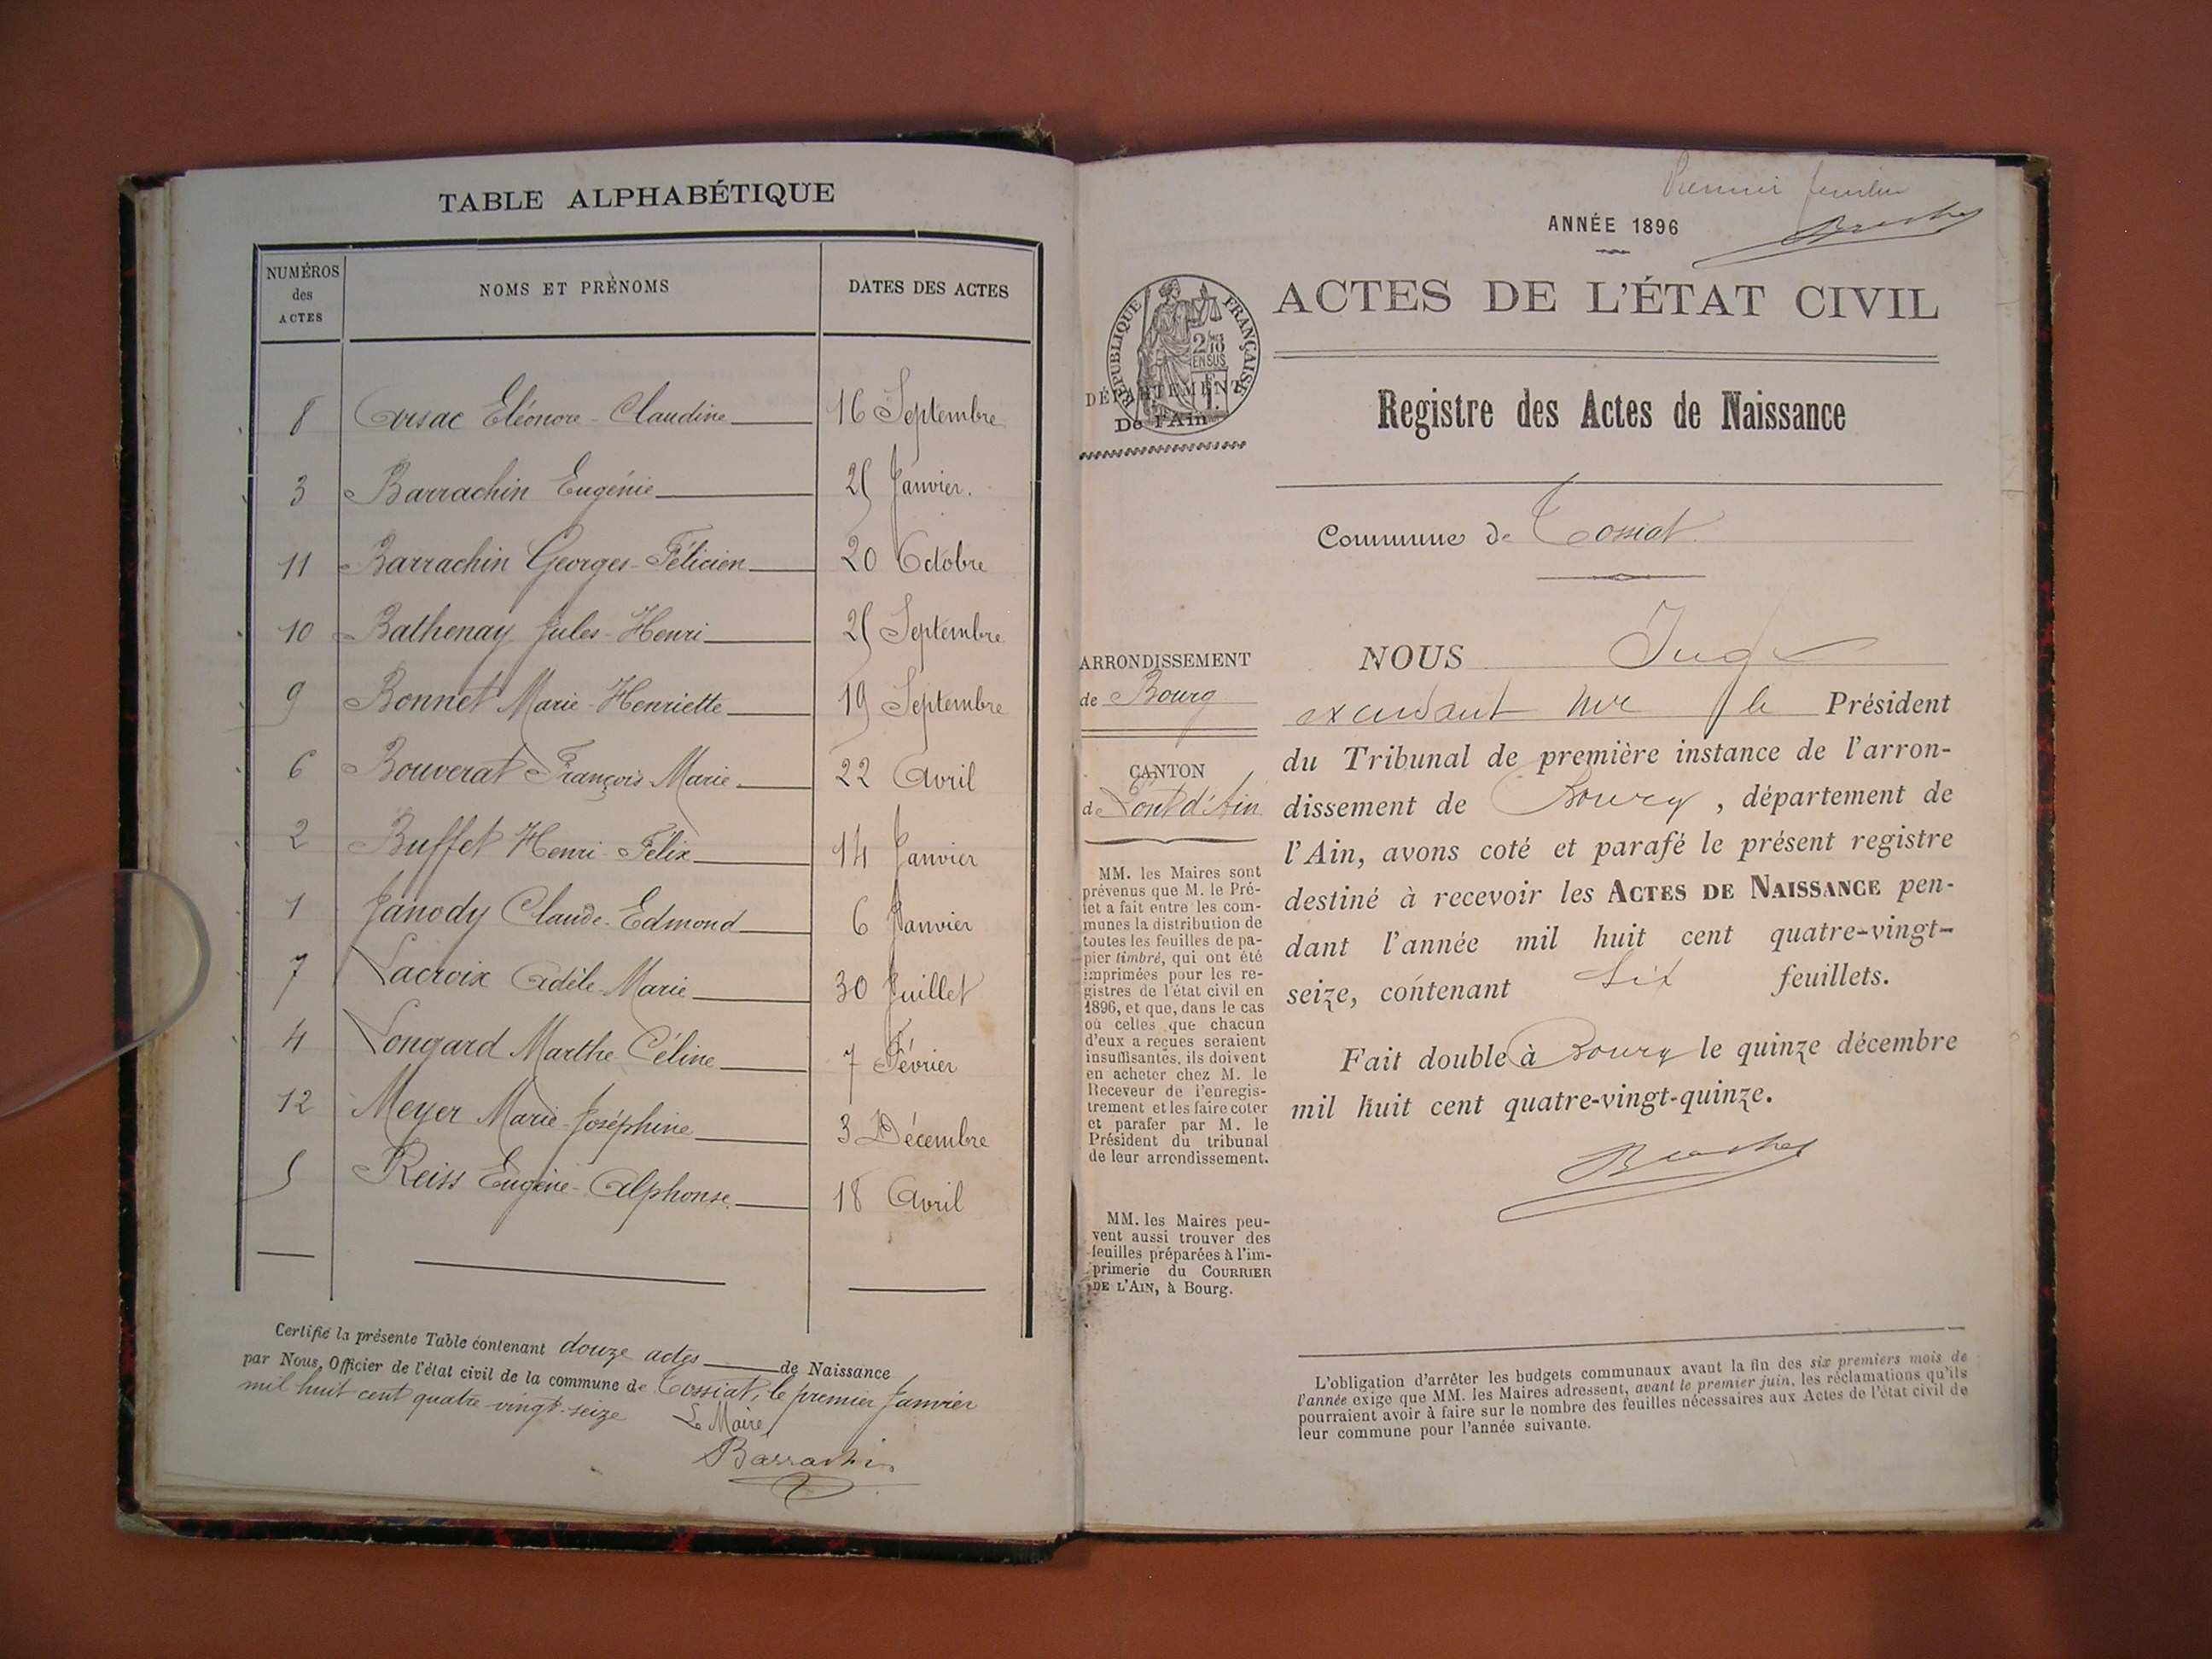 TABLE ALPHABÉTIQUE
NUMÉROS des ACTES
NOMS ET PRÉNOMS
DATES DES ACTES
8 Arsac Eléonore-Claudine 16 Septembre
3 Barrachin Eugénie 25 Janvier.
11 Barrachin Georges-Félicien 20 Octobre
10 Bathenay Jules-Henri 25 Septembre
9 Bonnet Marie-Henriette 19 Septembre
6 Bouverat François Marie 22 Avril
2 Buffet Henri-Félix 14 Janvier
1 Janody Claude-Edmond 6 Janvier
7 Lacroix Adèle-Marie 30 Juillet
4 Longard Marthe-Céline 7 Février
12 Meyer Marie-Joséphine 3 Décembre
5 Reiss Eugène-Alphonse 18 Avril
Certifié la présente Table contenant douze actes de Naissance
par Nous, Officier de l'état civil de la commune de Tossiat, le premier Janvier
mil huit cent quatre-vingt-seize
Le Maire
Barrachin
Premier feuillet
ANNÉE 1896
RÉPUBLIQUE FRANÇAISE
2/10
EN SUS
ACTES DE L'ÉTAT CIVIL
DÉPARTEMENT
De l'Ain
Registre des Actes de Naissance
Commune de Tossiat
ARRONDISSEMENT
de Bourg
CANTON
de Pont d'Ain
MM. les Maires sont
prévenus que M. le Pré-
fet a fait entre les com-
munes la distribution de
toutes les feuilles de pa-
pier timbré, qui ont été
imprimées pour les re-
gistres de l'état civil en
1896, et que, dans le cas
où celles que chacun
d'eux a reçues seraient
insuffisantes, ils doivent
en acheter chez M. le
Receveur de l'enregis-
trement et les faire coter
et parafer par M. le
Président du tribunal
de leur arrondissement.
MM. les Maires peu-
vent aussi trouver des
feuilles préparées à l'im-
primerie du COURRIER
DE L'AIN, à Bourg.
NOUS Juge
le Président
du Tribunal de première instance de l'arron-
dissement de Bourg, département de
l'Ain, avons coté et parafé le présent registre
destiné à recevoir les ACTES DE NAISSANCE pen-
dant l'année mil huit cent quatre-vingt-
seize, contenant six feuillets.
Fait double à Bourg le quinze décembre
mil huit cent quatre-vingt-quinze.
L'obligation d'arrêter les budgets communaux avant la fin des six premiers mois de
l'année exige que MM. les Maires adressent, avant le premier juin, les réclamations qu'ils
pourraient avoir à faire sur le nombre des feuilles nécessaires aux Actes de l'état civil de
leur commune pour l'année suivante.